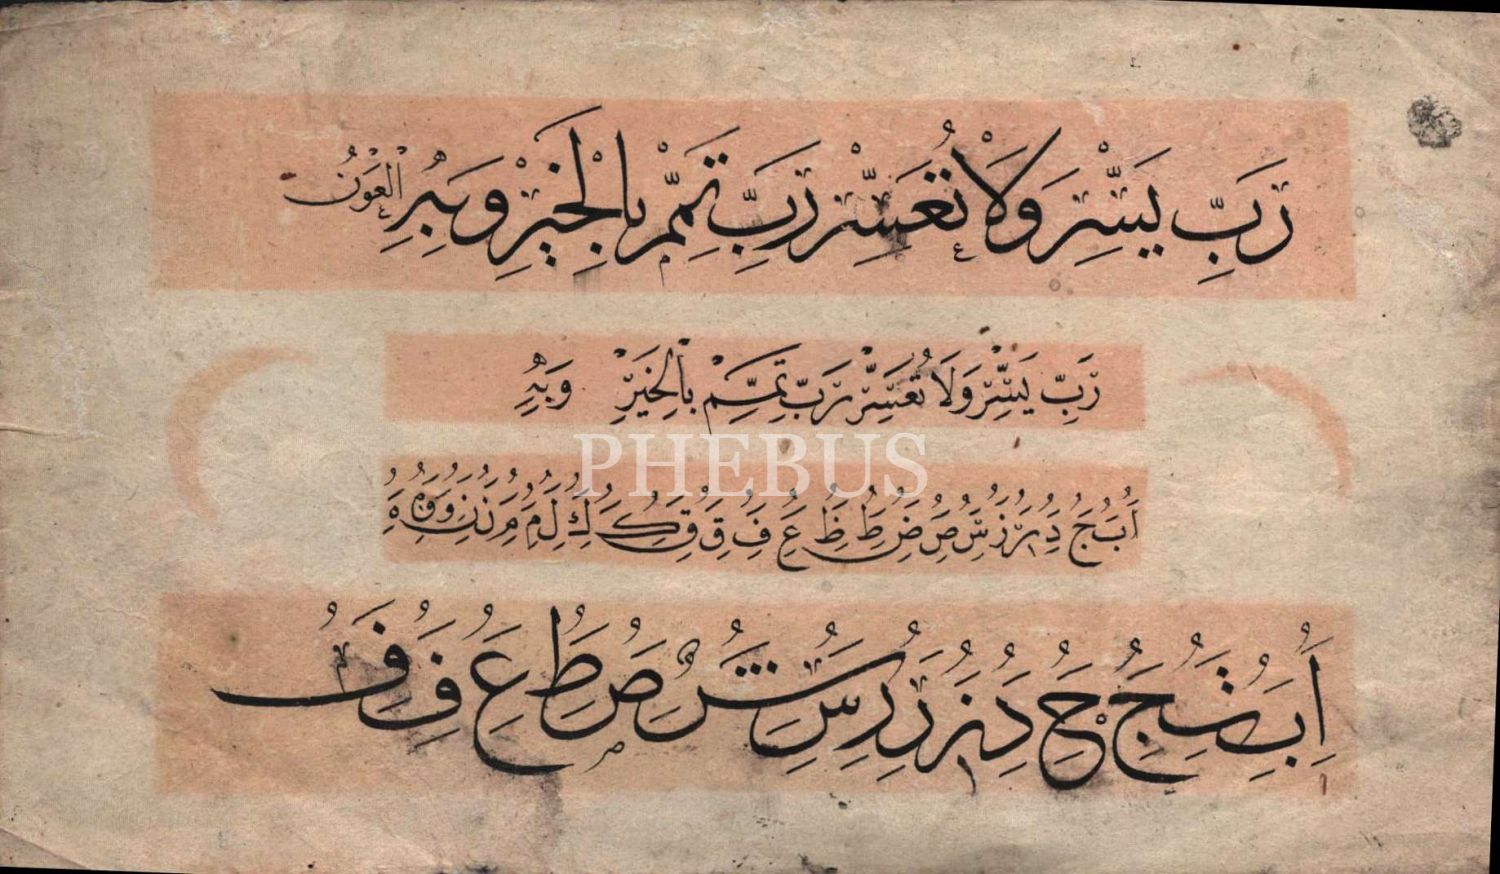 رَبِّ يَسِّرْ وَلَا تُعَسِّرْ رَبِّ تَمِّمْ بِالْخَيْرِ وَبِهِ الْعَوْنُ
رَبِّ يَسِّرْ وَلَا تُعَسِّرْ رَبِّ تَمِّمْ بِالْخَيْرِ وَبِهِ
PHEBUS
ا ب ج د ر ز س ص ض ط ظ ع ف ق ق ك ك ل م م ن ن و و ه
ا ب ث ج ح د ز ر ر س ش ص ط ع ف ف